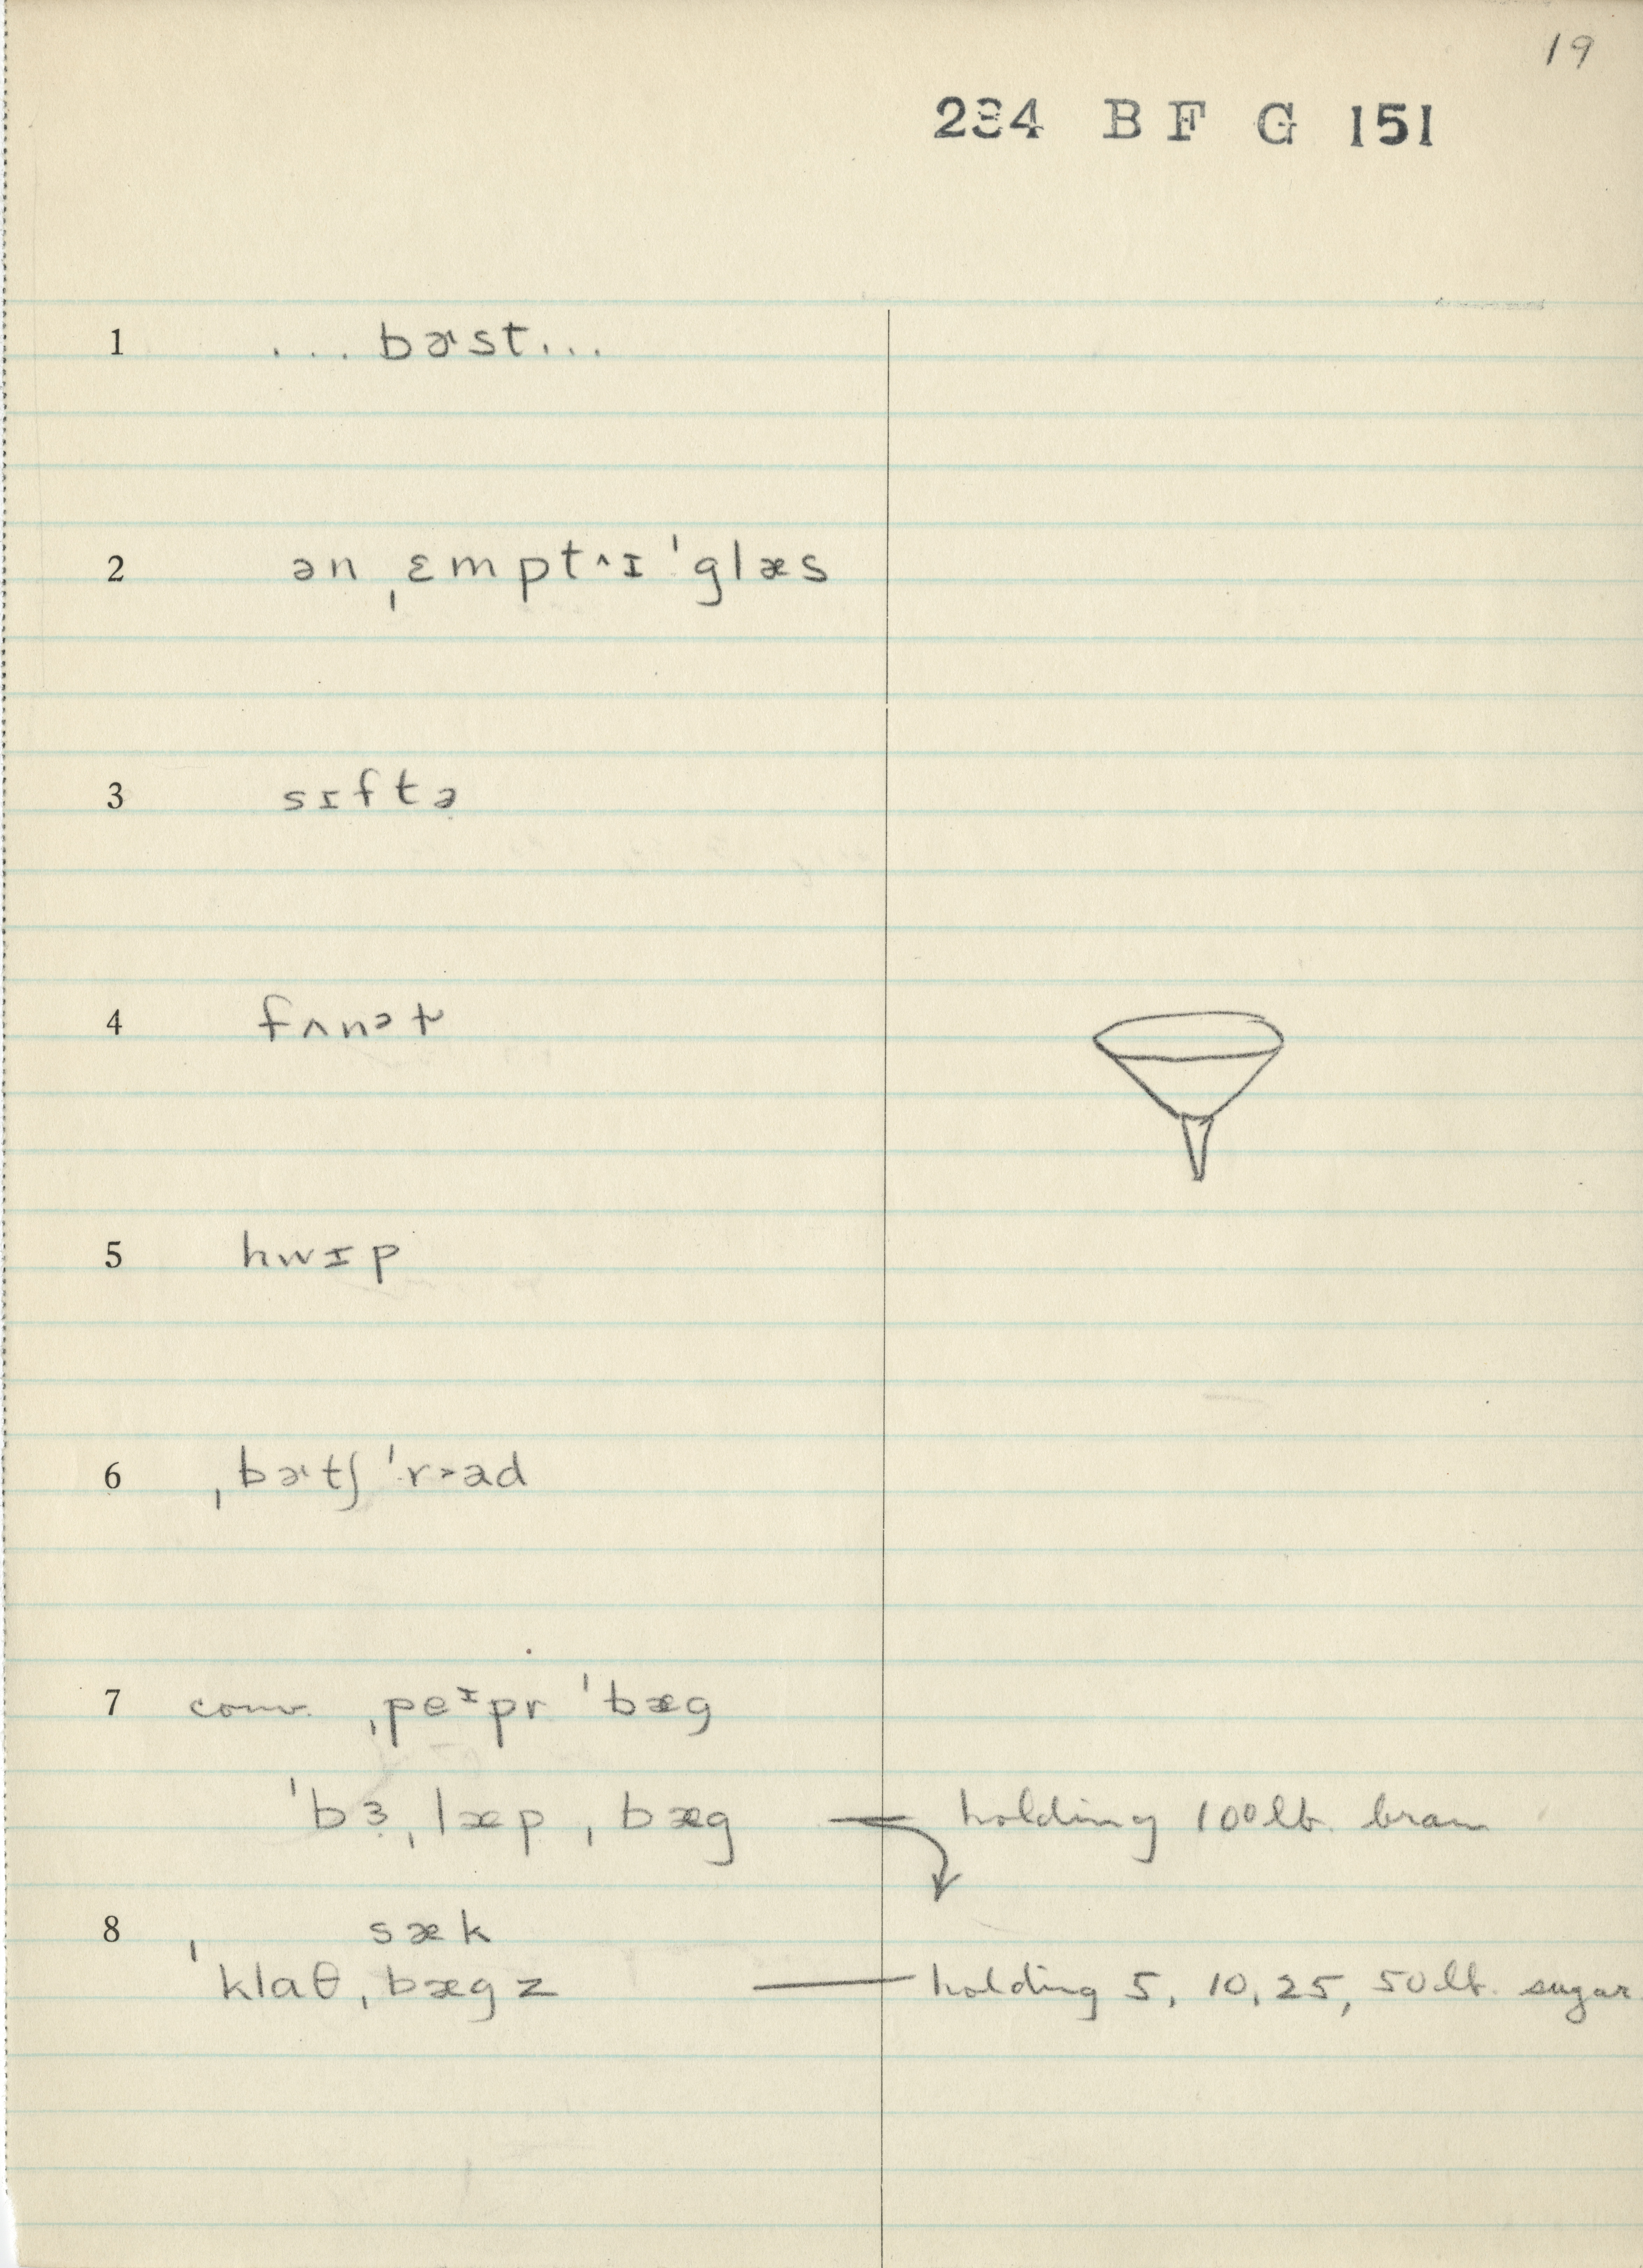 19
234 BF G 151
1 ...bɚst...
2 ən ˌɛmpt^ɪ ˈglæs
3 sɪftə
4 fʌnəɫ
5 hwɪp
6 ˌbɚtʃ ˈrɔəd
7 conv. ˌpeᶦpr ˈbæg
ˈbɜˌlæpˌbæg — holding 100 lb. bran
8 sæk
ˈklaθˌbægz — holding 5, 10, 25, 50 lb. sugar